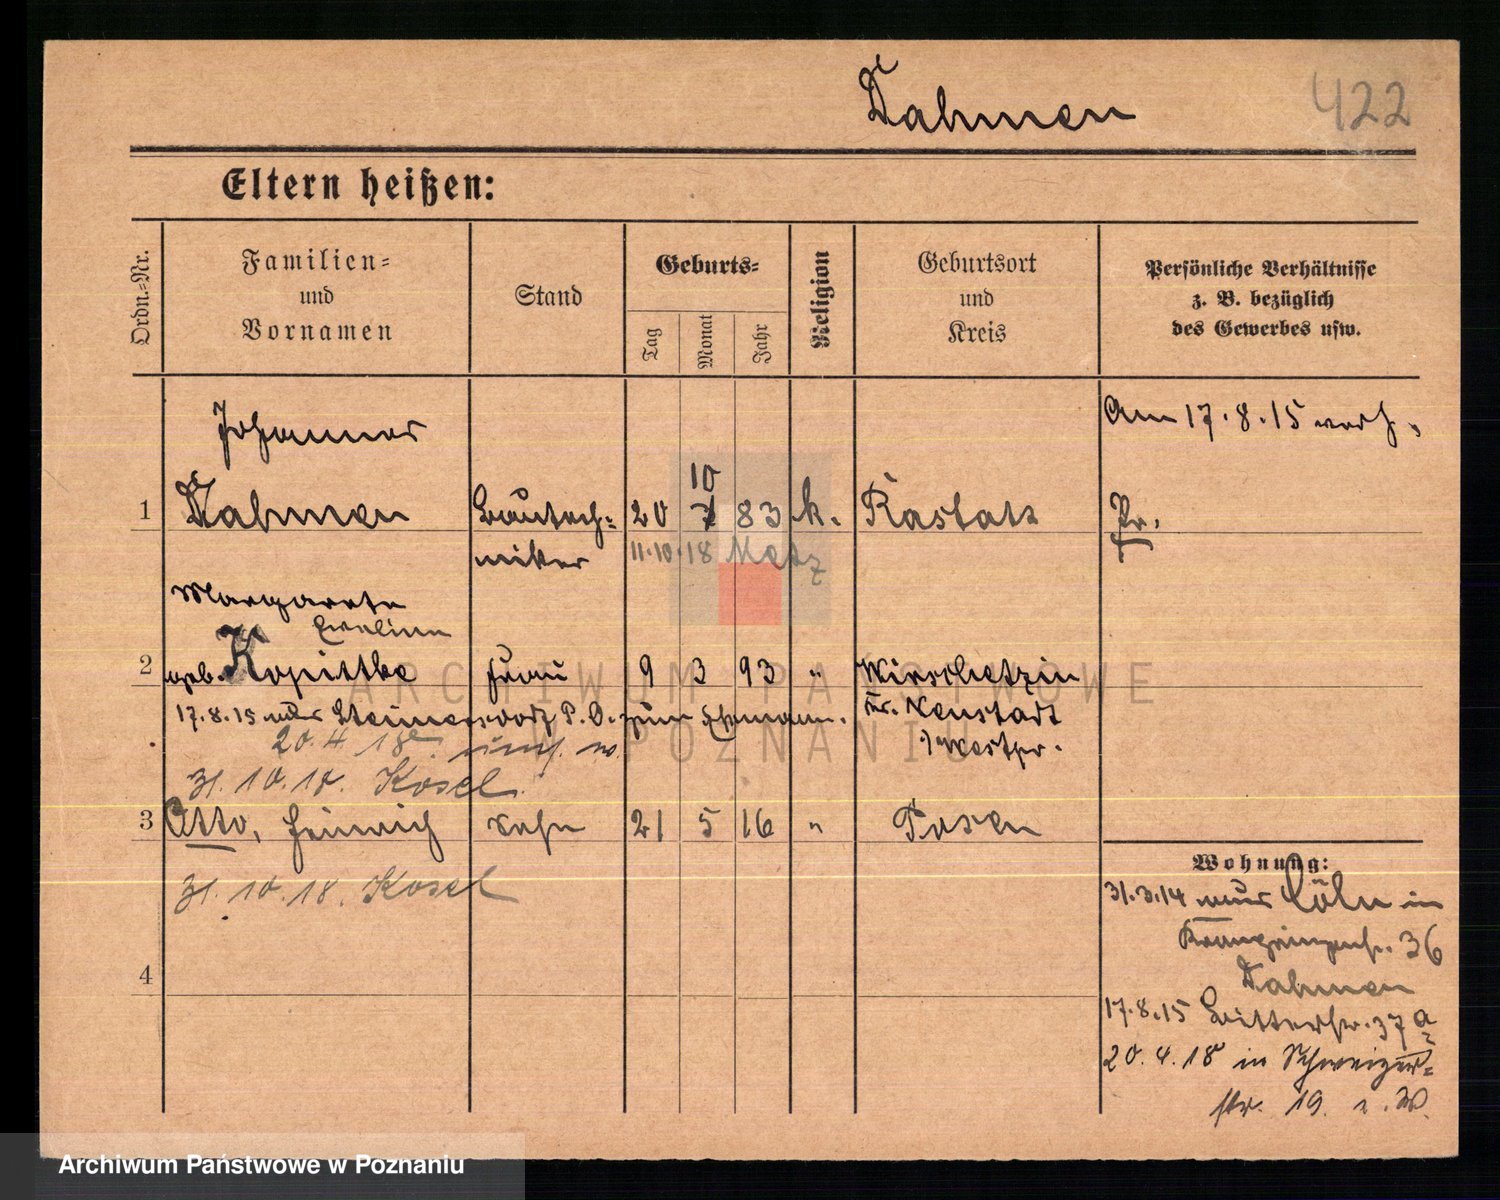 Dahmen 422
Eltern heißen:
Ordn.-Nr.
Familien-
und
Vornamen
Stand
Geburts-
Tag
Monat
Jahr
Religion
Geburtsort
und
Kreis
Persönliche Verhältnisse
z. B. bezüglich
des Gewerbes usw.
Am 17.8.15 verh.
Johannes
10
1 Dahmen Bautech- 20 7 83 k. Rastatt Pr.
niker 11.10.18 Metz
Margarete
Eveline
2 geb. Kopittke Frau 9 3 93 " Wirschetzin
17.8.15 aus P.O. zum Ehemann. Kr. Neustadt
20.4.18 Westpr.
31.10.18. Kosel
3 Otto, Heinrich Sohn 21 5 16 " Posen
31.10.18. Kosel
4
Wohnung:
31.3.14 aus Cöln in
36
Dahmen
17.8.15 Ritterstr. 37a
20.4.18 in Schweizer-
str. 19.
ARCHIWUM PAŃSTWOWE
W POZNANIU
Archiwum Państwowe w Poznaniu